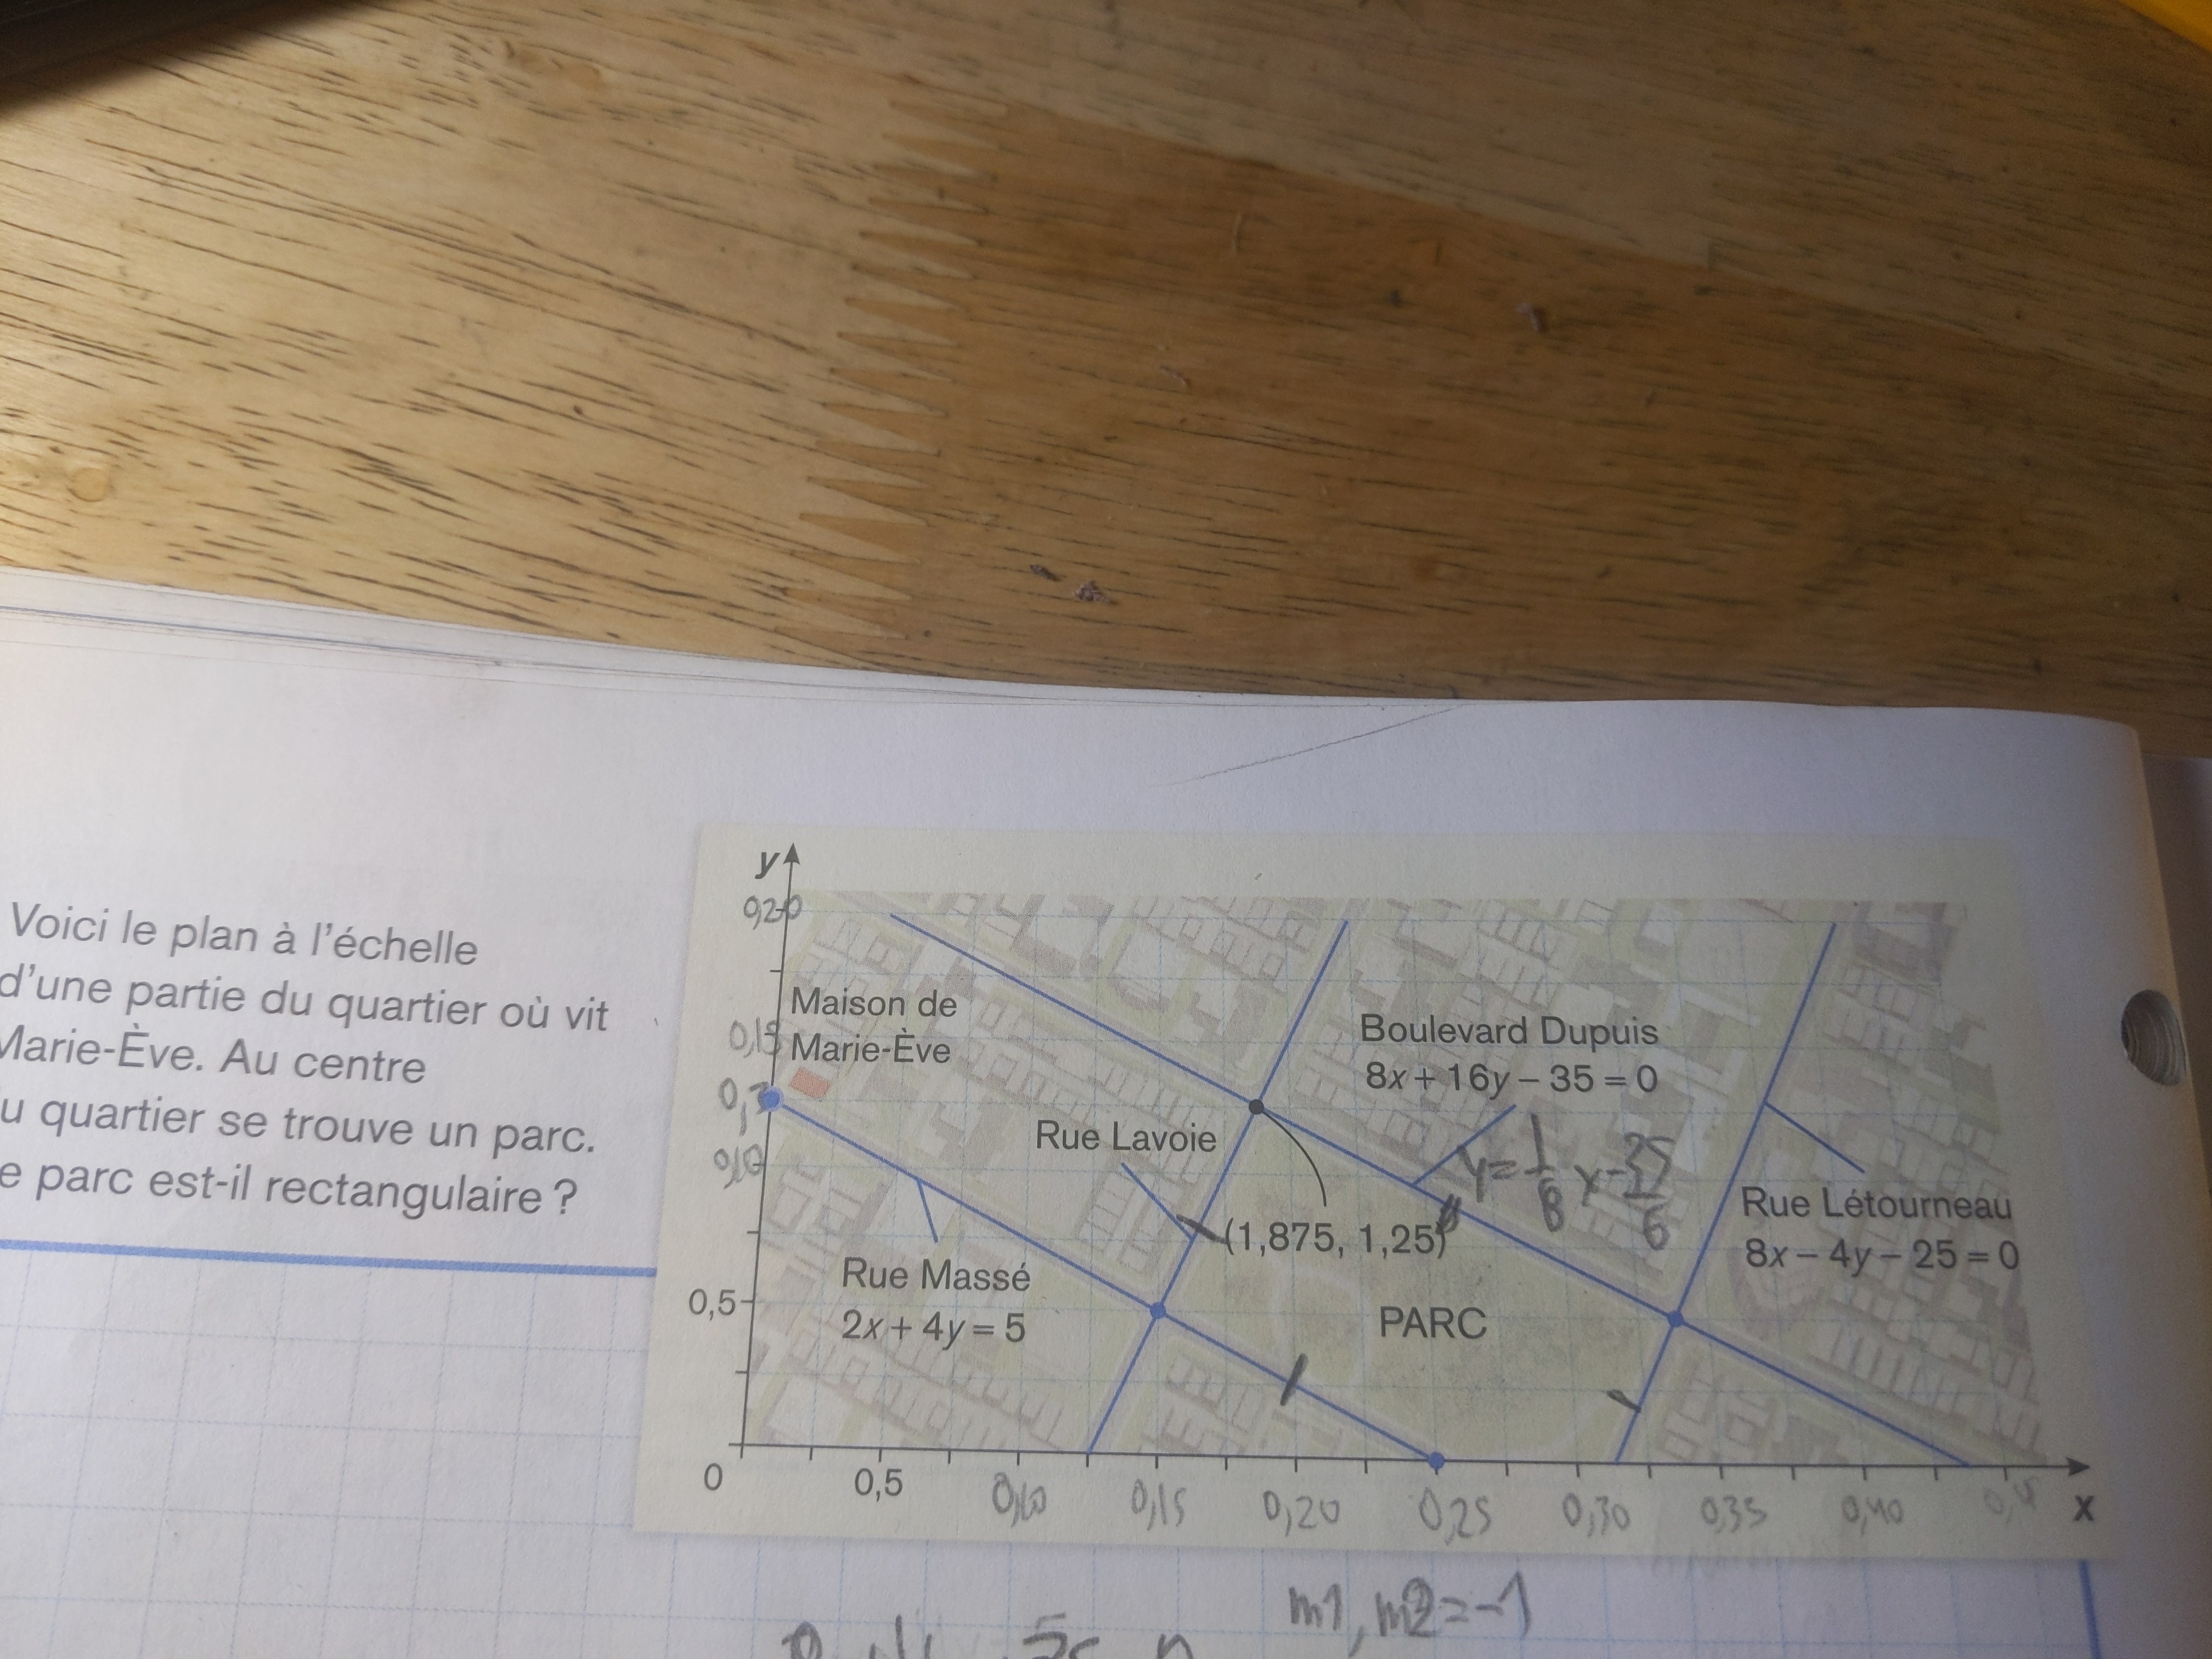 Voici le plan à l'échelle
d'une partie du quartier où vit
Marie-Ève. Au centre
u quartier se trouve un parc.
e parc est-il rectangulaire ?
y
0,20
Maison de
Marie-Ève
0,15
Boulevard Dupuis
8x + 16y – 35 = 0
Rue Lavoie
(1,875, 1,25)
Rue Létourneau
8x – 4y – 25 = 0
Rue Massé
2x + 4y = 5
0,5
PARC
0
0,5
0,10
0,15
0,20
0,25
0,30
0,35
0,40
x
m1, m2 = -1